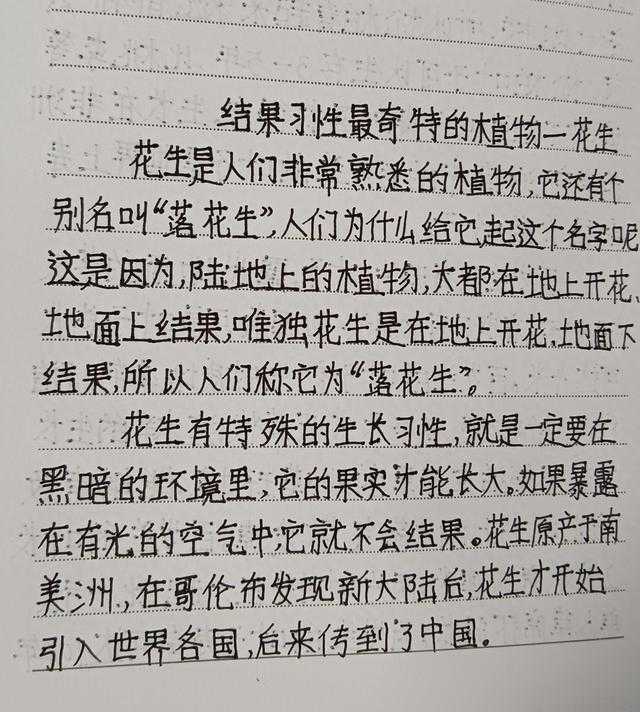 结果习性最奇特的植物一花生
花生是人们非常熟悉的植物,它还有个
别名叫“落花生”,人们为什么给它起这个名字呢
这是因为,陆地上的植物,大都在地上开花、
地面上结果,唯独花生是在地上开花,地面下
结果,所以人们称它为“落花生”。
花生有特殊的生长习性,就是一定要在
黑暗的环境里,它的果实才能长大。如果暴露
在有光的空气中,它就不会结果。花生原产于南
美洲,在哥伦布发现新大陆后,花生才开始
引入世界各国,后来传到了中国。